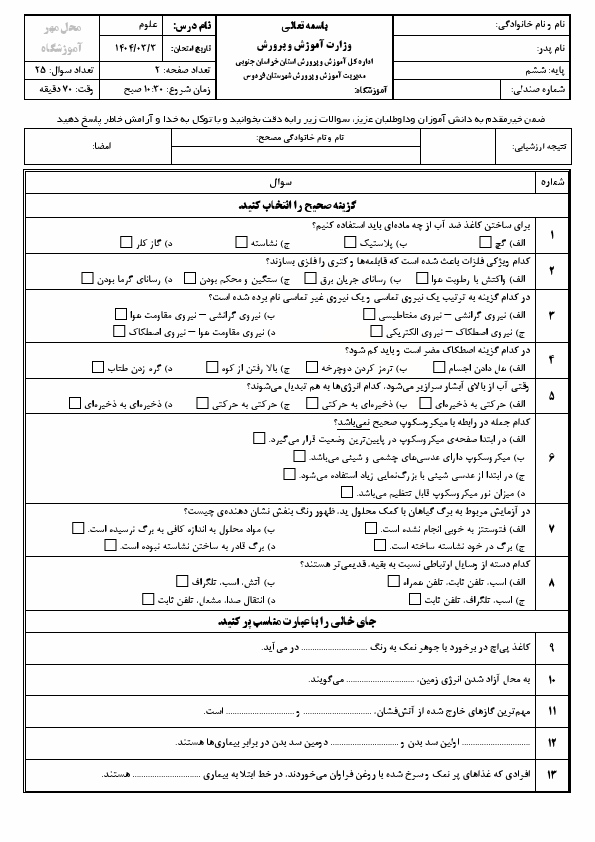 نام و نام خانوادگی:
نام پدر:
پایه: ششم
شماره صندلی:
باسمه تعالی
وزارت آموزش و پرورش
اداره کل آموزش و پرورش استان خراسان جنوبی
مدیریت آموزش و پرورش شهرستان فردوس
آموزشگاه:
نام درس: علوم
تاریخ امتحان: ۱۴۰۴/۰۳/۳
تعداد صفحه: ۲
زمان شروع: ۱۰:۳۰ صبح
محل مهر
آموزشگاه
تعداد سوال: ۲۵
وقت: ۷۰ دقیقه
ضمن خیرمقدم به دانش آموزان و داوطلبان عزیز، سوالات زیر را به دقت بخوانید و با توکل به خدا و آرامش خاطر پاسخ دهید
نتیجه ارزشیابی:
نام و نام خانوادگی مصحح:
امضا:
شماره
سوال
گزینه صحیح را انتخاب کنید.
۱
برای ساختن کاغذ ضد آب از چه ماده‌ای باید استفاده کنیم؟
الف) گچ ب) پلاستیک ج) نشاسته د) گاز کلر
۲
کدام ویژگی فلزات باعث شده است که قابلمه‌ها و کتری را فلزی بسازند؟
الف) واکنش با رطوبت هوا ب) رسانای جریان برق ج) سنگین و محکم بودن د) رسانای گرما بودن
۳
در کدام گزینه به ترتیب یک نیروی تماسی و یک نیروی غیر تماسی نام برده شده است؟
الف) نیروی گرانشی – نیروی مغناطیسی ب) نیروی گرانشی – نیروی مقاومت هوا
ج) نیروی اصطکاک – نیروی الکتریکی د) نیروی مقاومت هوا – نیروی اصطکاک
۴
در کدام گزینه اصطکاک مضر است و باید کم شود؟
الف) هل دادن اجسام ب) ترمز کردن دوچرخه ج) بالا رفتن از کوه د) گره زدن طناب
۵
وقتی آب از بالای آبشار سرازیر می‌شود، کدام انرژی‌ها به هم تبدیل می‌شوند؟
الف) حرکتی به ذخیره‌ای ب) ذخیره‌ای به حرکتی ج) حرکتی به حرکتی د) ذخیره‌ای به ذخیره‌ای
۶
کدام جمله در رابطه با میکروسکوپ صحیح نمی‌باشد؟
الف) در ابتدا صفحه‌ی میکروسکوپ در پایین‌ترین وضعیت قرار می‌گیرد.
ب) میکروسکوپ دارای عدسی‌های چشمی و شیئی می‌باشد.
ج) در ابتدا از عدسی شیئی با بزرگ‌نمایی زیاد استفاده می‌شود.
د) میزان نور میکروسکوپ قابل تنظیم می‌باشد.
۷
در آزمایش مربوط به برگ گیاهان با کمک محلول ید، ظهور رنگ بنفش نشان دهنده‌ی چیست؟
الف) فتوسنتز به خوبی انجام نشده است. ب) مواد محلول به اندازه کافی به برگ نرسیده است.
ج) برگ در خود نشاسته ساخته است. د) برگ قادر به ساختن نشاسته نبوده است.
۸
کدام دسته از وسایل ارتباطی نسبت به بقیه، قدیمی‌تر هستند؟
الف) اسب، تلفن ثابت، تلفن همراه ب) آتش، اسب، تلگراف
ج) اسب، تلگراف، تلفن ثابت د) انتقال صدا، مشعل، تلفن ثابت
جای خالی را با عبارت مناسب پر کنید.
۹
کاغذ پی‌اچ در برخورد با جوهر نمک به رنگ ............................ در می‌آید.
۱۰
به محل آزاد شدن انرژی زمین، ............................ می‌گویند.
۱۱
مهم‌ترین گازهای خارج شده از آتش‌فشان، ............................ و ............................ است.
۱۲
............................ اولین سد بدن و ............................ دومین سد بدن در برابر بیماری‌ها هستند.
۱۳
افرادی که غذاهای پر نمک و سرخ شده با روغن فراوان می‌خوردند، در خط ابتلا به بیماری ............................ هستند.